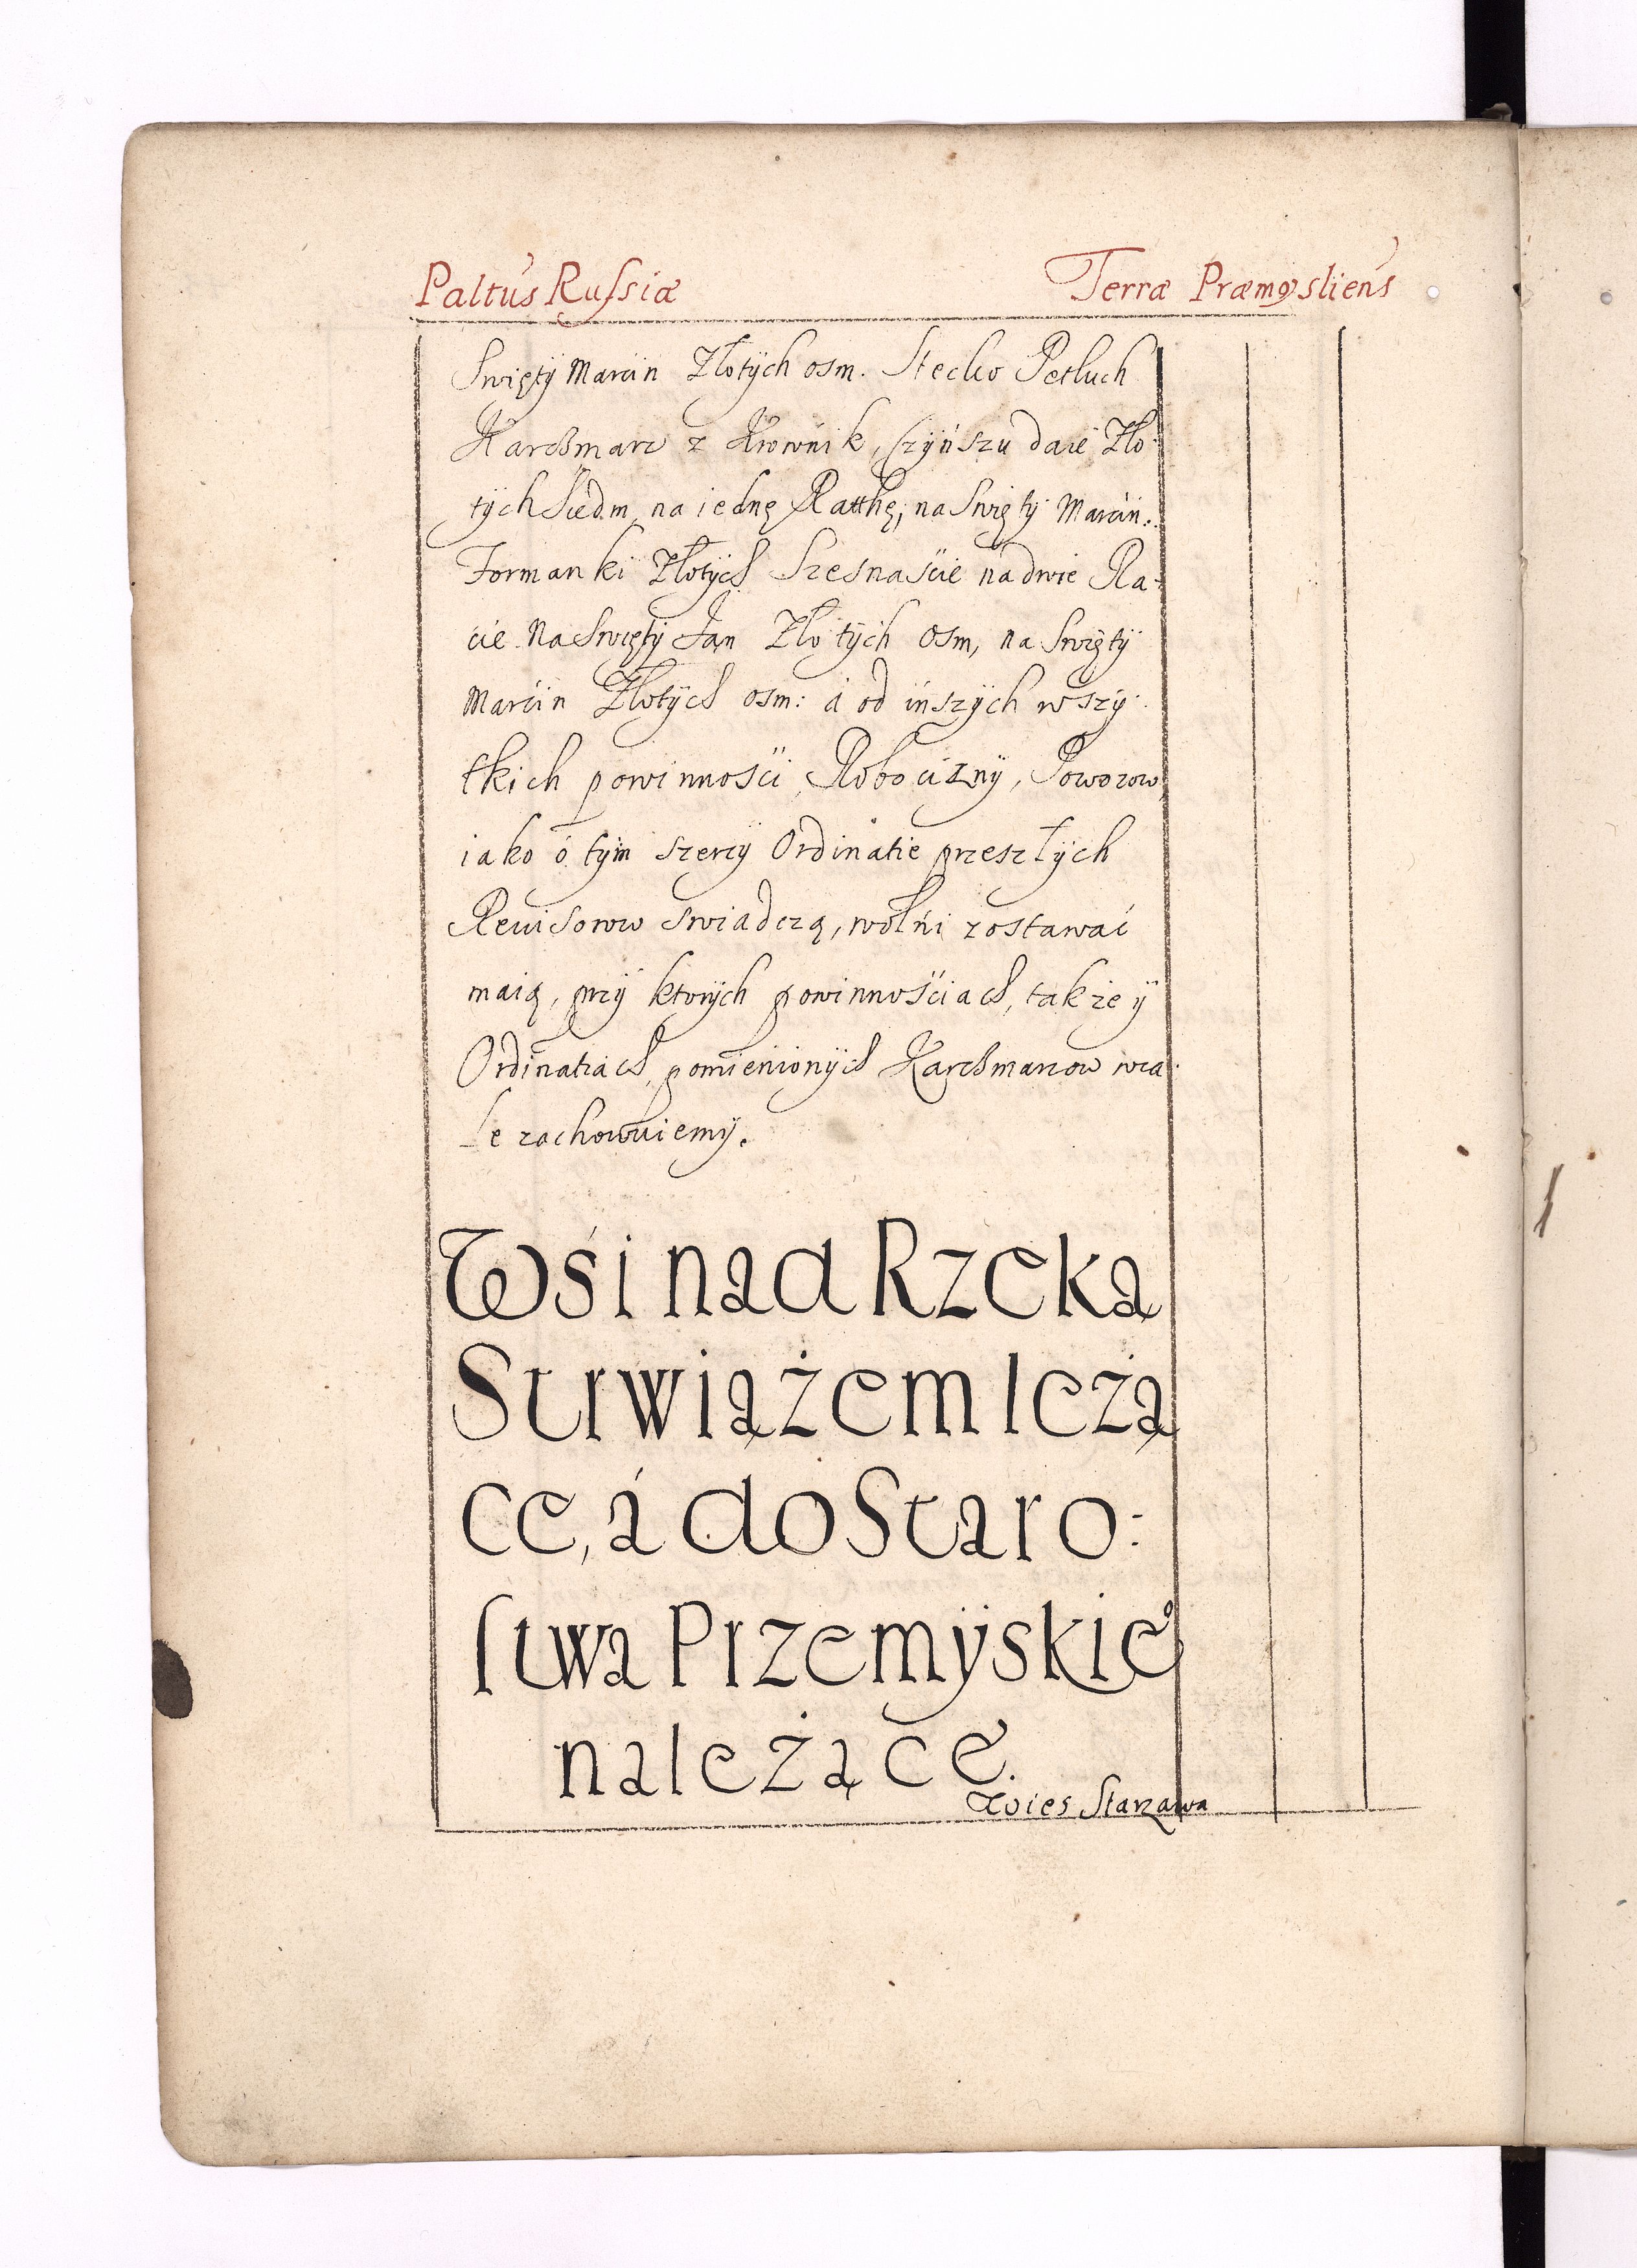 Paltus Russiæ Terræ Præmysliens
Swięty Marcin Złotÿch osm. Stecko Petluch
Karcżmarz z Krownik, Czÿnszu daie Zło:
tÿch Siedm, na iednę Ratthę, na Swiętÿ Marcin.
Formanki Złotÿch Szesnascie na dwie Ra:
cie. Na Swiętÿ Jan Złotÿch osm, na Swiętÿ
Marcin Złotÿch osm: á od inszÿch wszÿ:
tkich powinnosci, Robociznÿ, Powozow,
iako o tÿm szerzÿ Ordinatie przeszłÿch
Reuisorow swiadczą, wolni zostawać
maią, przÿ ktorÿch powinnościach, także ÿ
Ordinatiach, pomienionÿch Karcżmarzow wca:
le zachowuiemÿ.
Wśi nad Rzeką
Strwiążem leżą
ce, á do Staro:
stwa Przemÿskie°
należące.
Wies Starzawa